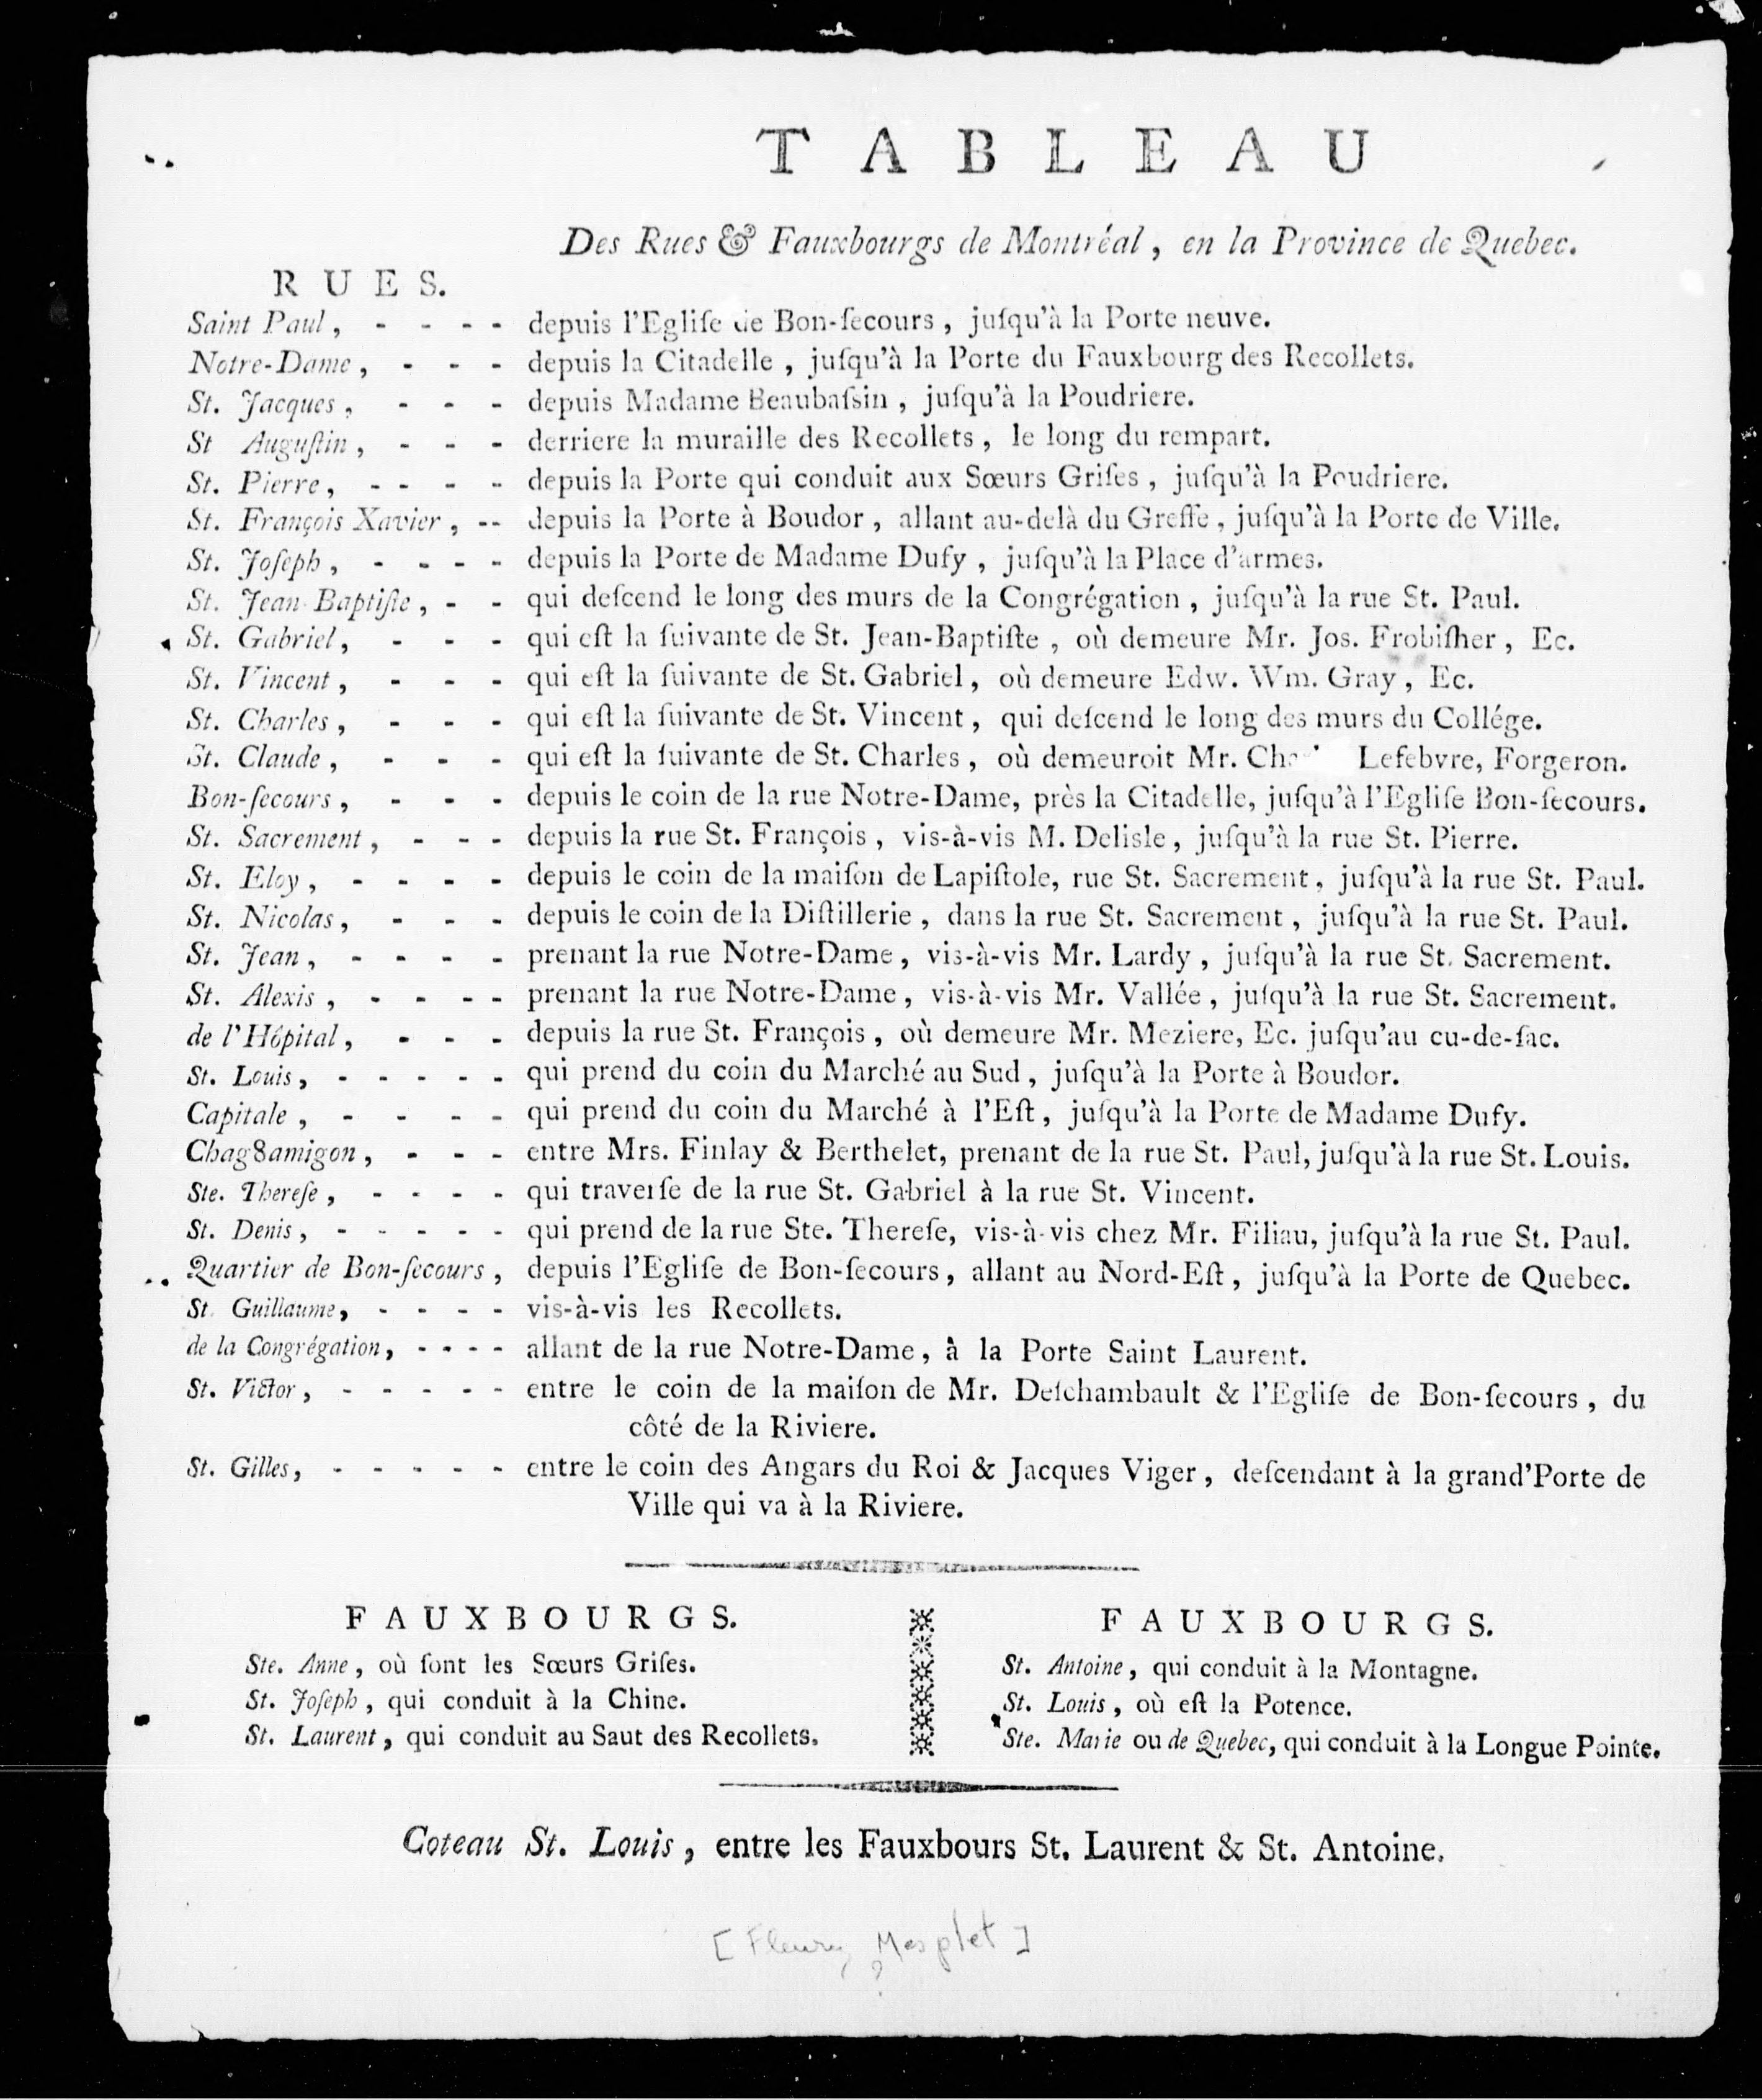 TABLEAU
Des Rues & Fauxbourgs de Montréal, en la Province de Quebec.
RUES.
Saint Paul, - - - - depuis l'Egliſe de Bon-ſecours, juſqu'à la Porte neuve.
Notre-Dame, - - - depuis la Citadelle, juſqu'à la Porte du Fauxbourg des Recollets.
St. Jacques, - - - depuis Madame Beaubaſsin, juſqu'à la Poudriere.
St Auguſtin, - - - derriere la muraille des Recollets, le long du rempart.
St. Pierre, - - - - depuis la Porte qui conduit aux Sœurs Griſes, juſqu'à la Poudriere.
St. François Xavier, - - depuis la Porte à Boudor, allant au-delà du Greffe, juſqu'à la Porte de Ville.
St. Joſeph, - - - - depuis la Porte de Madame Dufy, juſqu'à la Place d'armes.
St. Jean-Baptiſte, - - qui deſcend le long des murs de la Congrégation, juſqu'à la rue St. Paul.
St. Gabriel, - - - qui eſt la ſuivante de St. Jean-Baptiſte, où demeure Mr. Jos. Frobiſher, Ec.
St. Vincent, - - - qui eſt la ſuivante de St. Gabriel, où demeure Edw. Wm. Gray, Ec.
St. Charles, - - - qui eſt la ſuivante de St. Vincent, qui deſcend le long des murs du Collége.
St. Claude, - - - qui eſt la ſuivante de St. Charles, où demeuroit Mr. Lefebvre, Forgeron.
Bon-ſecours, - - - depuis le coin de la rue Notre-Dame, près la Citadelle, juſqu'à l'Egliſe Bon-ſecours.
St. Sacrement, - - - depuis la rue St. François, vis-à-vis M. Delisle, juſqu'à la rue St. Pierre.
St. Eloy, - - - - depuis le coin de la maiſon de Lapiſtole, rue St. Sacrement, juſqu'à la rue St. Paul.
St. Nicolas, - - - depuis le coin de la Diſtillerie, dans la rue St. Sacrement, juſqu'à la rue St. Paul.
St. Jean, - - - - prenant la rue Notre-Dame, vis-à-vis Mr. Lardy, juſqu'à la rue St. Sacrement.
St. Alexis, - - - - prenant la rue Notre-Dame, vis-à-vis Mr. Vallée, juſqu'à la rue St. Sacrement.
de l'Hôpital, - - - depuis la rue St. François, où demeure Mr. Meziere, Ec. juſqu'au cu-de-ſac.
St. Louis, - - - - - qui prend du coin du Marché au Sud, juſqu'à la Porte à Boudor.
Capitale, - - - - qui prend du coin du Marché à l'Eſt, juſqu'à la Porte de Madame Dufy.
Chag8amigon, - - - entre Mrs. Finlay & Berthelet, prenant de la rue St. Paul, juſqu'à la rue St. Louis.
Ste. Thereſe, - - - - qui traverſe de la rue St. Gabriel à la rue St. Vincent.
St. Denis, - - - - - qui prend de la rue Ste. Thereſe, vis-à-vis chez Mr. Filiau, juſqu'à la rue St. Paul.
Quartier de Bon-ſecours, depuis l'Egliſe de Bon-ſecours, allant au Nord-Eſt, juſqu'à la Porte de Quebec.
St. Guillaume, - - - - vis-à-vis les Recollets.
de la Congrégation, - - - - allant de la rue Notre-Dame, à la Porte Saint Laurent.
St. Victor, - - - - - entre le coin de la maiſon de Mr. Deſchambault & l'Egliſe de Bon-ſecours, du
côté de la Riviere.
St. Gilles, - - - - - entre le coin des Angars du Roi & Jacques Viger, deſcendant à la grand'Porte de
Ville qui va à la Riviere.
FAUXBOURGS.
Ste. Anne, où ſont les Sœurs Griſes.
St. Joſeph, qui conduit à la Chine.
St. Laurent, qui conduit au Saut des Recollets.
FAUXBOURGS.
St. Antoine, qui conduit à la Montagne.
St. Louis, où eſt la Potence.
Ste. Marie ou de Quebec, qui conduit à la Longue Pointe.
Coteau St. Louis, entre les Fauxbours St. Laurent & St. Antoine.
[Fleury Mesplet]
?